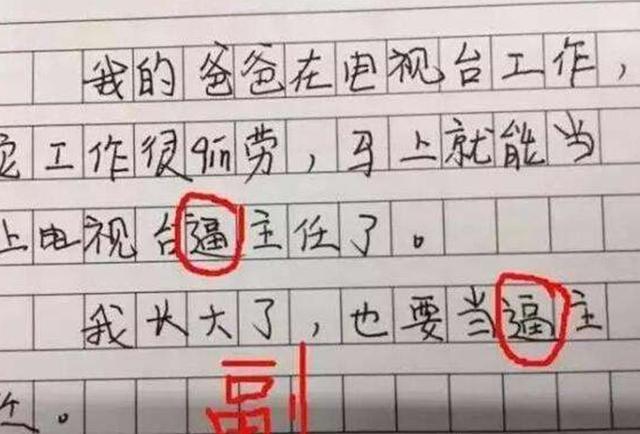 我的爸爸在电视台工作，
工作很qin劳，马上就能当
上电视台逼主任了。
我长大了，也要当逼主
。
副